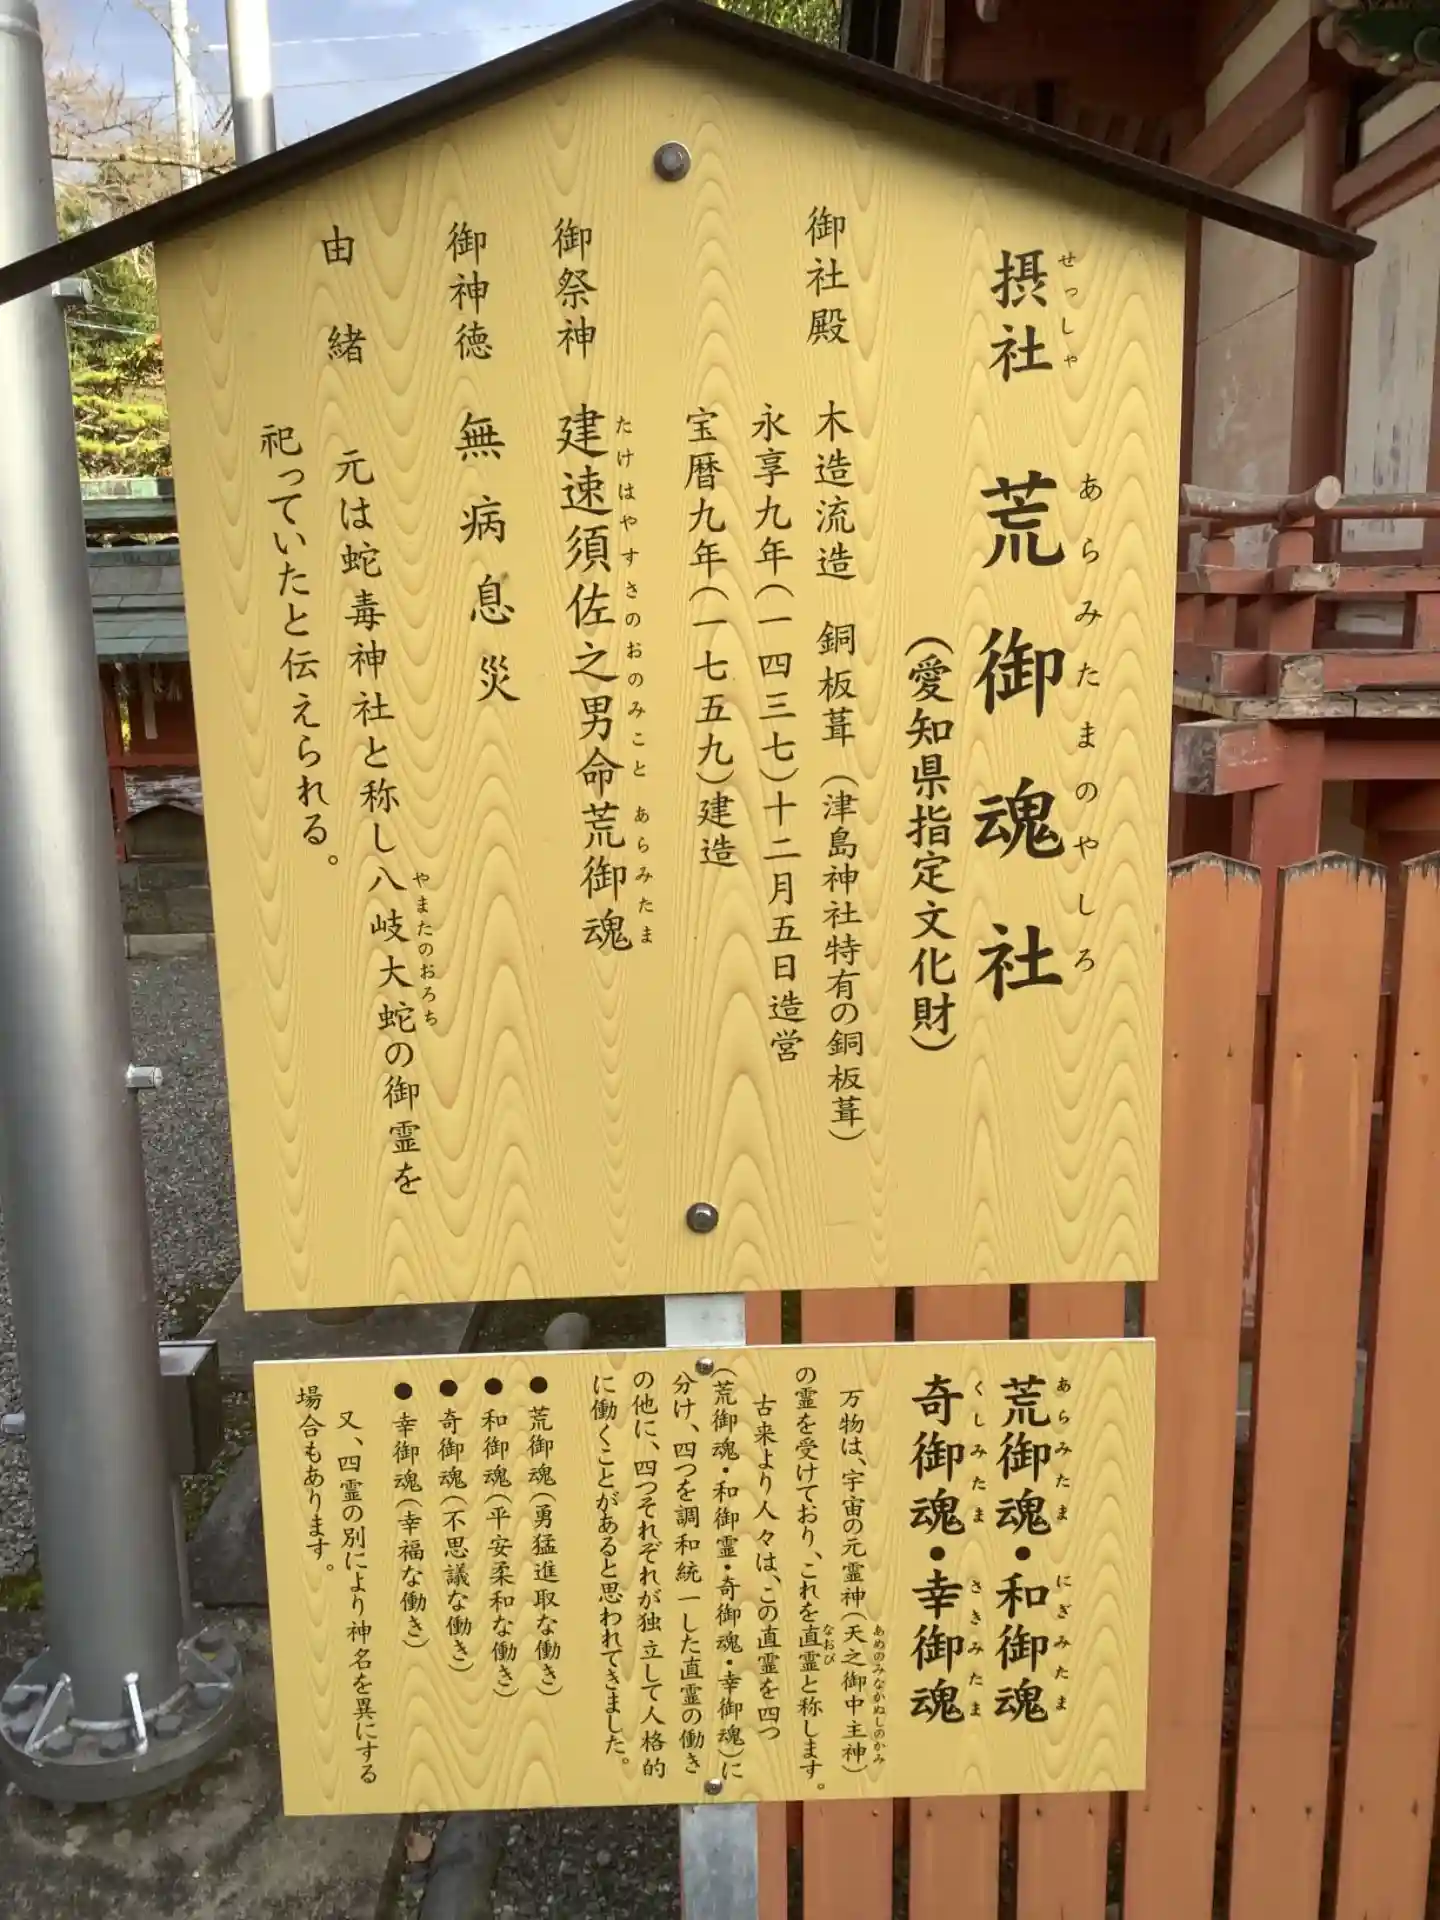 摂社 荒御魂社
せっしゃ あらみたまのやしろ
(愛知県指定文化財)
御社殿 木造流造 銅板葺 (津島神社特有の銅板葺)
永享九年(一四三七)十二月五日造営
宝暦九年(一七五九)建造
御祭神 建速須佐之男命荒御魂
たけはやすさのおのみこと あらみたま
御神徳 無病息災
由緒 元は蛇毒神社と称し八岐大蛇の御霊を
やまたのおろち
祀っていたと伝えられる。
荒御魂・和御魂
あらみたま にぎみたま
奇御魂・幸御魂
くしみたま さきみたま
万物は、宇宙の元霊神(天之御中主神)
あめのみなかぬしのかみ
の霊を受けており、これを直霊と称します。
なおび
古来より人々は、この直霊を四つ
(荒御魂・和御霊・奇御魂・幸御魂)に
分け、四つを調和統一した直霊の働き
の他に、四つそれぞれが独立して人格的
に働くことがあると思われてきました。
●荒御魂(勇猛進取な働き)
●和御魂(平安柔和な働き)
●奇御魂(不思議な働き)
●幸御魂(幸福な働き)
又、四霊の別により神名を異にする
場合もあります。